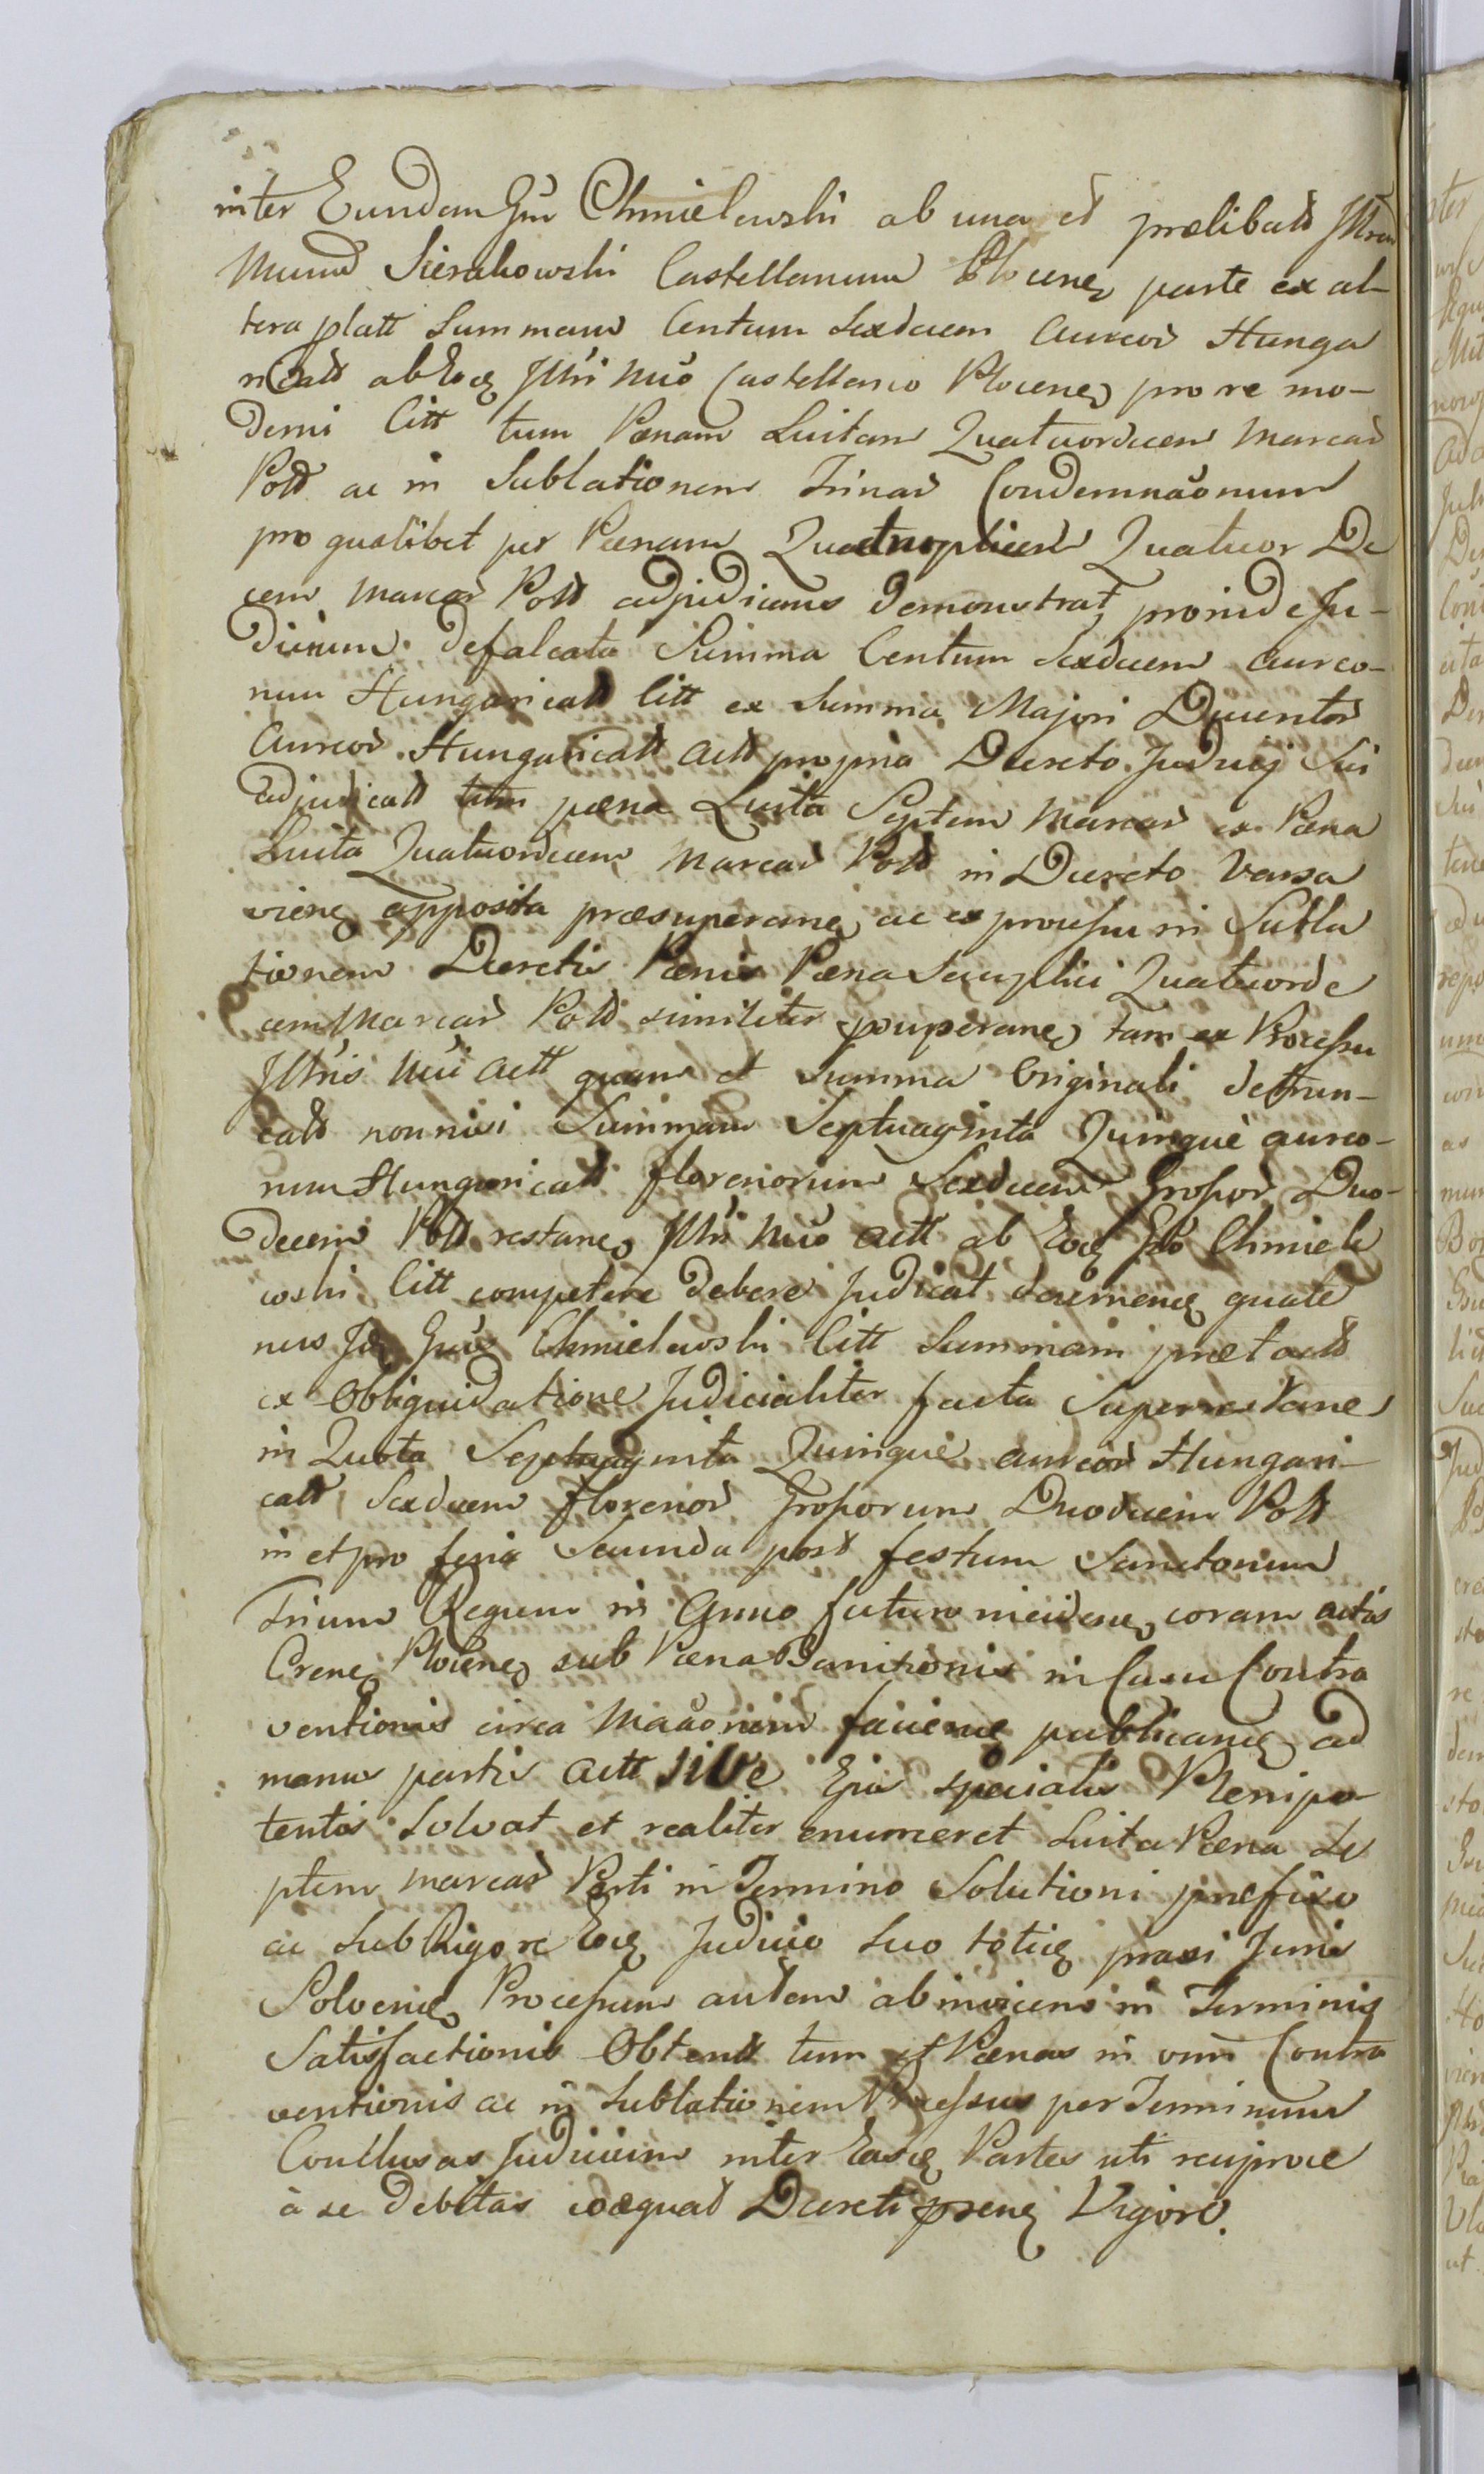 inter Eundem Gm Chmielewski ab una et prælibatt Illrem
Mnum Sierakowski Castellanum Plocens parte ex al-
tera platt Summam Centum Sexdecem Aureor Hunga
ricatt ab Eode Illri Mno Castellano Plocens pro re mo-
derni Citt tum Pænam Luitam Quatuordecem Marcar
Poltt ac in Sublationem Trinar Condemnaonum
pro qualibet per Pænam Quadruplicem Quatuor De
cem Marcar Poltt adjudicans demonstrat, proinde Ju-
dicium defalcata Summa Centum Sexdecem Aureo-
rum Hungaricatt Citt ex Summa Majori Ducentor
Aureor Hungaricatt Actt propria Decreto Judicij Sui
adjudicatt tum pæna Luita Septem Marcar ex Pæna
Luita Quatuordecem Marcar Poltt in Decreto Varsa
viens apposita præsuperans ac ex processu in Subla
tionem Decretis Pænis Pæna Semplici Quatuorde
cem Marcar Poltt similiter superans tam ex Processu
Illris Mni Actt quam et Summa Originali detrun-
catt nonnisi Summam Septuaginta Quinque aureo-
rum Hungaricatt florenorum Sexdecem Grossor Duo-
decem Poltt restans Illri Mno Actt ab Eode Gso Chmiele
wski Citt competere debere judicat decernens quate
nus Ide Gnus Chmielewski Citt Summam prætactt
ex Obliquidatione Judicialiter facta Superrestans
in Quota Septuaginta Quinque aureor Hungari-
catt Sexdecem florenor Grossorum Duodecim Poltt
in et pro feria Secunda post festum Sanctorum
Trium Regum in Anno futuro inciden, coram actis
Crens Plocens sub Pæna Banitionis in Casu Contra
ventionis circa Maaonem faciens publicans ad
manus partis Actt sive Ejus specialis Plenipo-
tentis Solvat et realiter enumeret Luita Pæna Se
ptem marcar Parti in Termino Solutioni præfixo
ac sub Rigore Eode Judicio Suo totide praxi Juris
Solvens, Processum autem ab invicem in Terminis
Satisfactionis Obtentt tum et Pænas in vim Contra
ventionis ac in Sublationem Processus per Terminum
Conclusas Judicium inter Easde Partes uti reciproce
à se debitas coæquat Decreti præns Vigore.